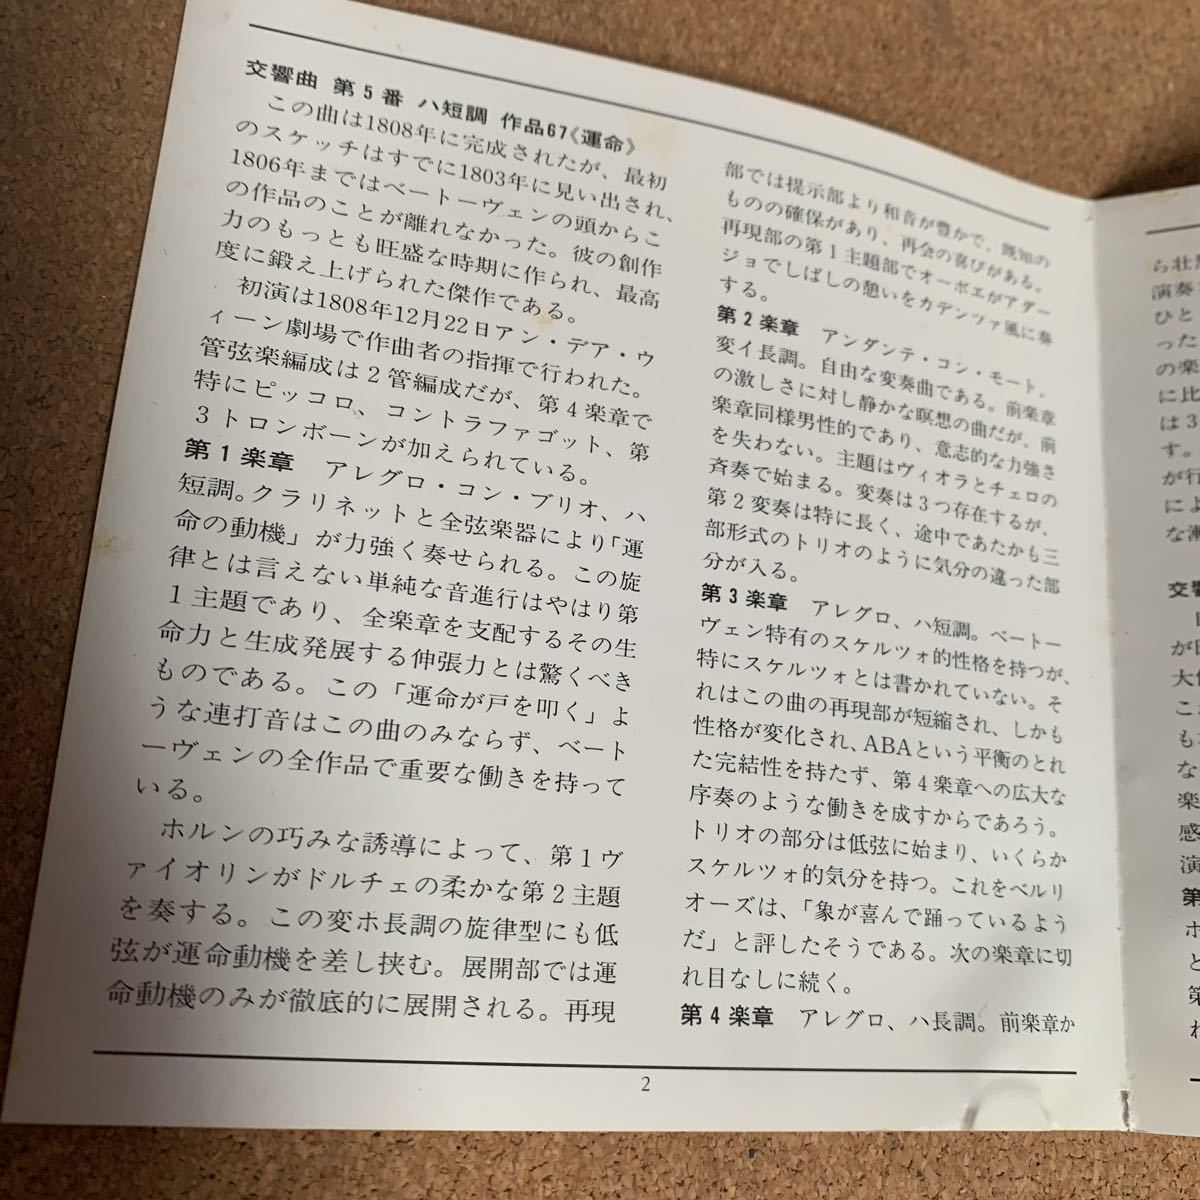 交響曲 第5番 ハ短調 作品67《運命》
この曲は1808年に完成されたが、最初
のスケッチはすでに1803年に見い出され、
1806年まではベートーヴェンの頭からこ
の作品のことが離れなかった。彼の創作
力のもっとも旺盛な時期に作られ、最高
度に鍛え上げられた傑作である。
初演は1808年12月22日アン・デア・ウ
ィーン劇場で作曲者の指揮で行われた。
管弦楽編成は2管編成だが、第4楽章で
特にピッコロ、コントラファゴット、第
3トロンボーンが加えられている。
第1楽章 アレグロ・コン・ブリオ、ハ
短調。クラリネットと全弦楽器により「運
命の動機」が力強く奏せられる。この旋
律とは言えない単純な音進行はやはり第
1主題であり、全楽章を支配するその生
命力と生成発展する伸張力とは驚くべき
ものである。この「運命が戸を叩く」よ
うな連打音はこの曲のみならず、ベート
ーヴェンの全作品で重要な働きを持って
いる。
ホルンの巧みな誘導によって、第1ヴ
ァイオリンがドルチェの柔かな第2主題
を奏する。この変ホ長調の旋律型にも低
弦が運命動機を差し挟む。展開部では運
命動機のみが徹底的に展開される。再現
部では提示部より和音が豊かで、既知の
ものの確保があり、再会の喜びがある。
再現部の第1主題部でオーボエがアダー
ジョでしばしの憩いをカデンツァ風に奏
する。
第2楽章 アンダンテ・コン・モート、
変イ長調。自由な変奏曲である。前楽章
の激しさに対し静かな瞑想の曲だが、前
楽章同様男性的であり、意志的な力強さ
を失わない。主題はヴィオラとチェロの
斉奏で始まる。変奏は3つ存在するが、
第2変奏は特に長く、途中であたかも三
部形式のトリオのように気分の違った部
分が入る。
第3楽章 アレグロ、ハ短調。ベートー
ヴェン特有のスケルツォ的性格を持つが、
特にスケルツォとは書かれていない。そ
れはこの曲の再現部が短縮され、しかも
性格が変化され、ABAという平衡のとれ
た完結性を持たず、第4楽章への広大な
序奏のような働きを成すからであろう。
トリオの部分は低弦に始まり、いくらか
スケルツォ的気分を持つ。これをベルリ
オーズは、「象が喜んで踊っているよう
だ」と評したそうである。次の楽章に切
れ目なしに続く。
第4楽章 アレグロ、ハ長調。前楽章か
2
演奏
ひと
った
の楽
に比
は3
す。
が行
によ
な漸
が
大
こ
も
な
楽
感
演
第
ホ
と
第
れ